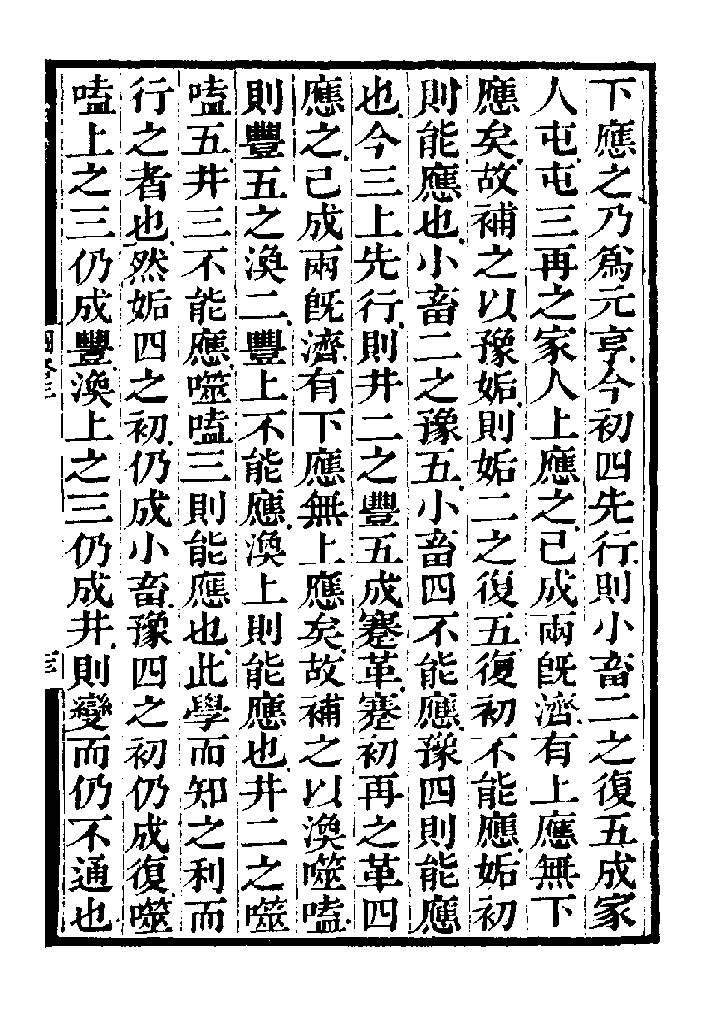 下應之乃爲元亨今初四先行則小畜二之復五成家
人屯屯三再之家人上應之已成兩旣濟有上應無下
應矣故補之以豫姤則姤二之復五復初不能應姤初
則能應也小畜二之豫五小畜四不能應豫四則能應
也今三上先行則井二之豐五成蹇革蹇初再之革四
應之已成兩旣濟有下應無上應矣故補之以渙噬嗑
則豐五之渙二豐上不能應渙上則能應也井二之噬
嗑五井三不能應噬嗑三則能應也此學而知之利而
行之者也然姤四之初仍成小畜豫四之初仍成復噬
嗑上之三仍成豐渙上之三仍成井則變而仍不通也